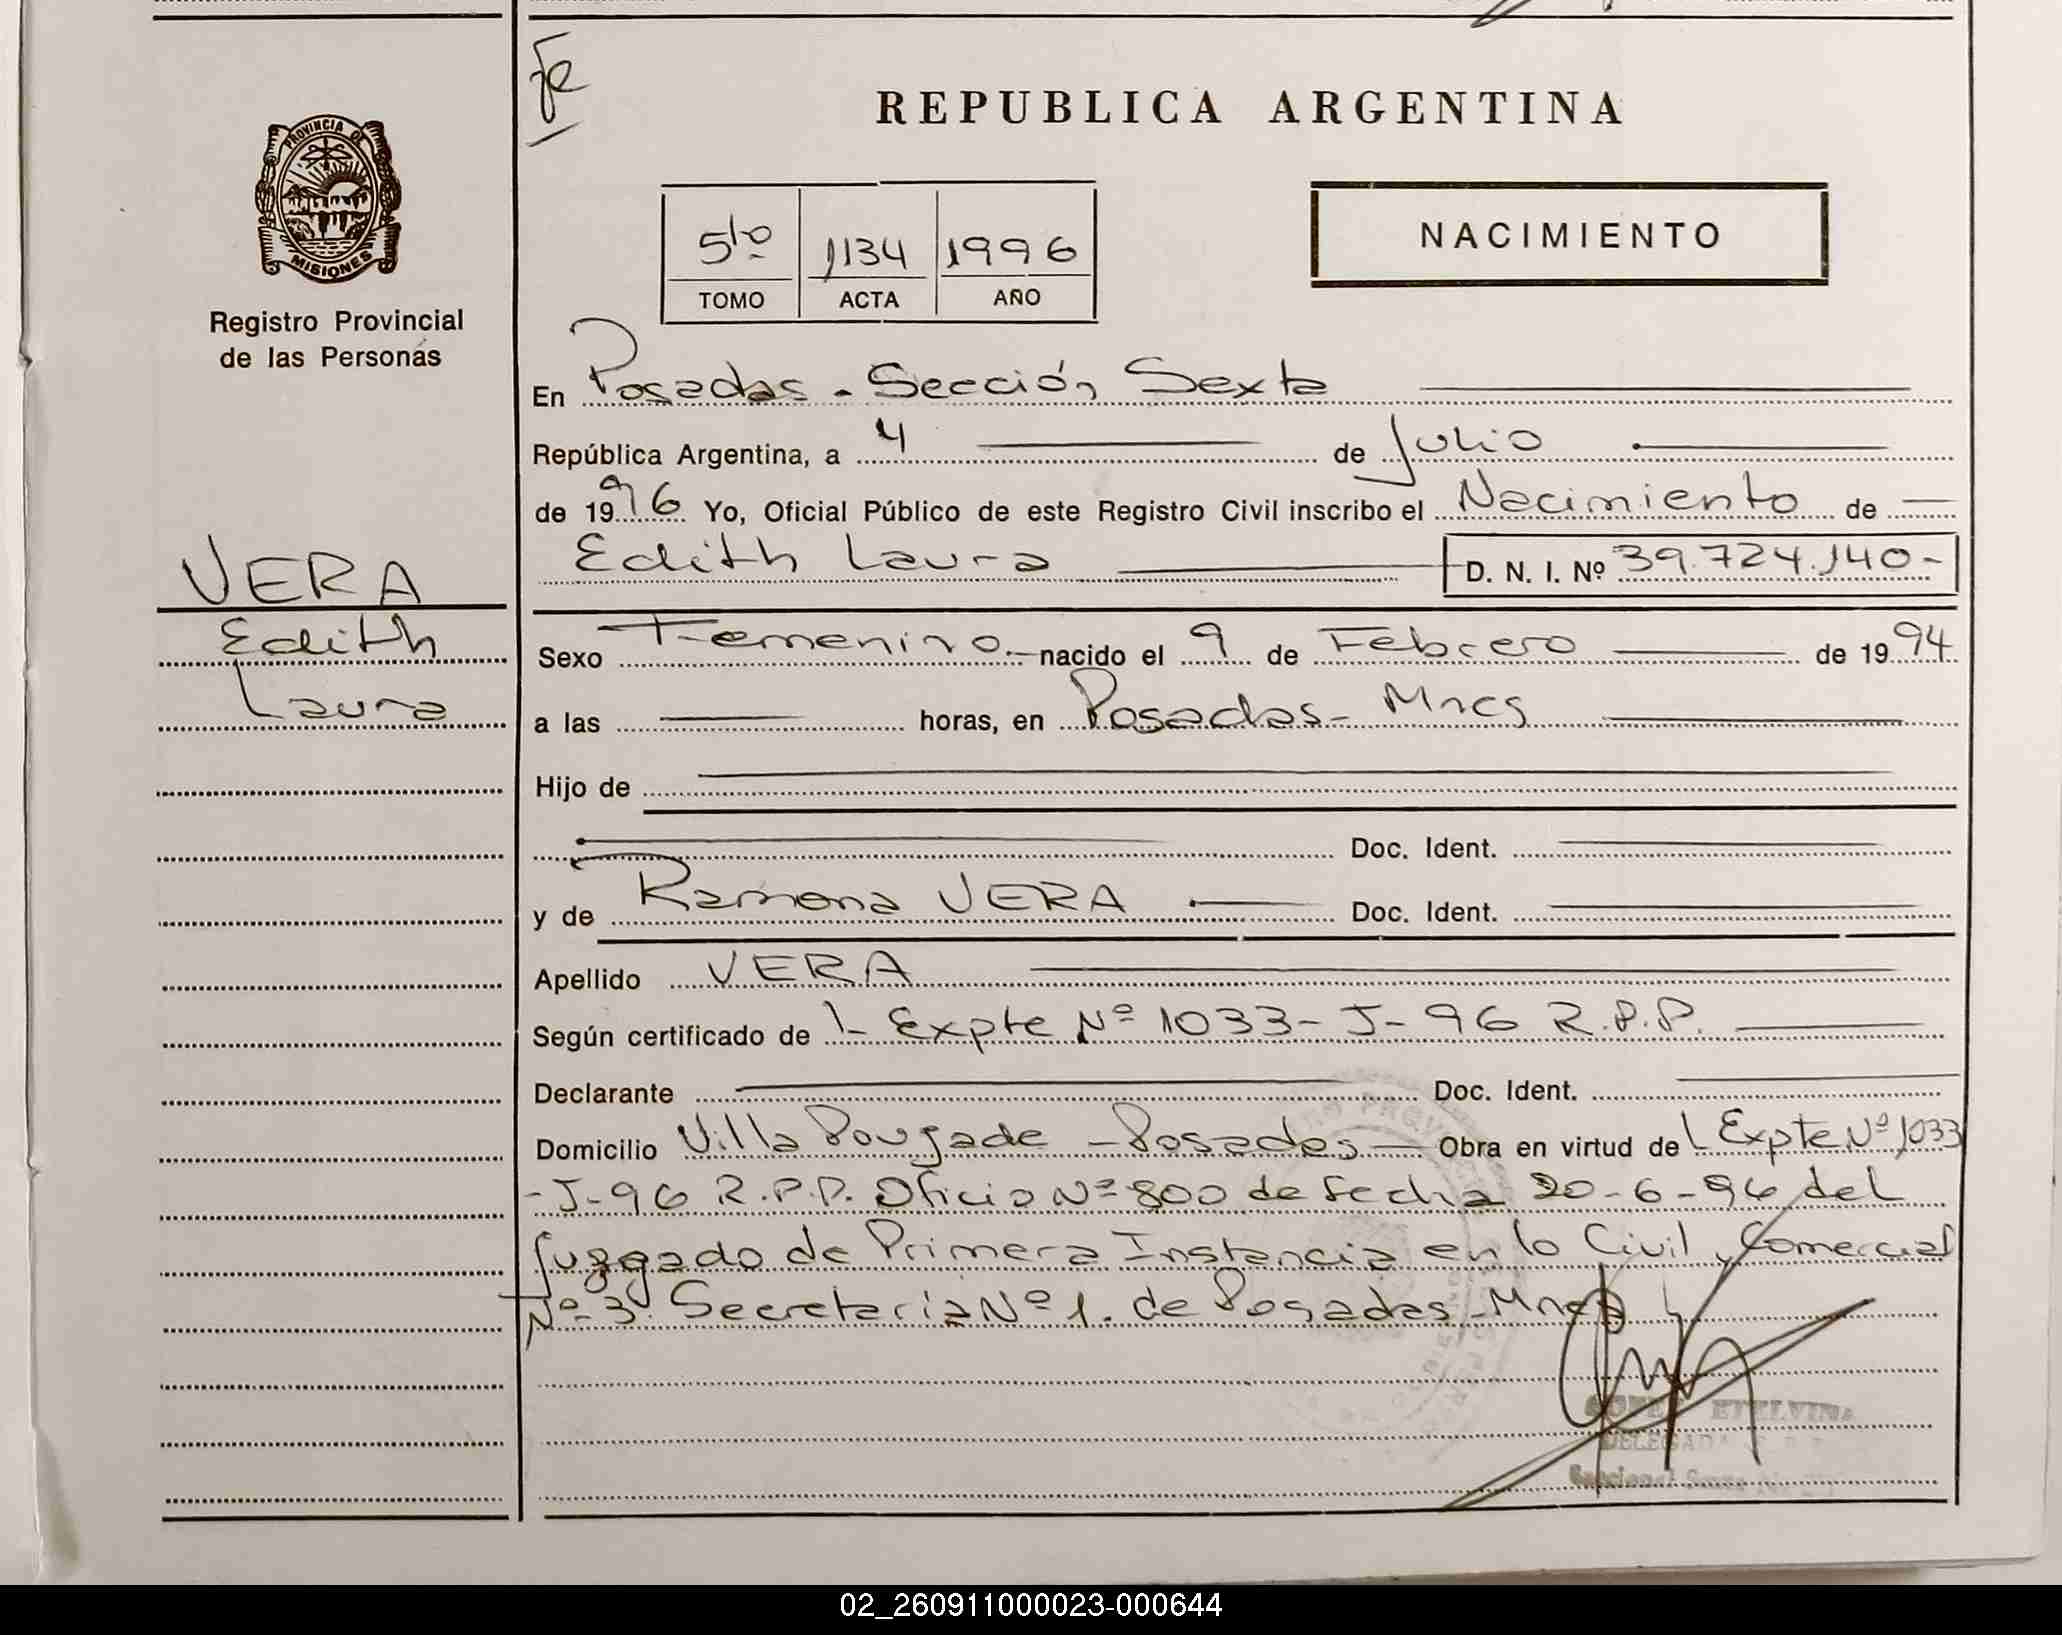 REPUBLICA ARGENTINA
PROVINCIA DE
MISIONES
Registro Provincial
de las Personas
5to 1134 1996
TOMO ACTA AÑO
NACIMIENTO
En Posadas - Sección Sexta
República Argentina, a 4 de Julio
de 1996 Yo, Oficial Público de este Registro Civil inscribo el Nacimiento de
Edith Laura D. N. I. Nº 39.724.140-
VERA
Edith
Laura
Sexo Femenino nacido el 9 de Febrero de 1994
a las horas, en Posadas - Mnes
Hijo de
Doc. Ident.
y de Ramona VERA Doc. Ident.
Apellido VERA
Según certificado de Expte Nº 1033-J-96 R.P.P.
Declarante Doc. Ident.
Domicilio Villa Pougade - Posadas - Obra en virtud de Expte Nº 1033
-J-96 R.P.P. Oficio Nº 800 de fecha 20-6-96 del
Juzgado de Primera Instancia en lo Civil y Comercial
Nº 3. Secretaria Nº 1. de Posadas - Mnes
ETELVINA
DELEGADA
02_260911000023-000644